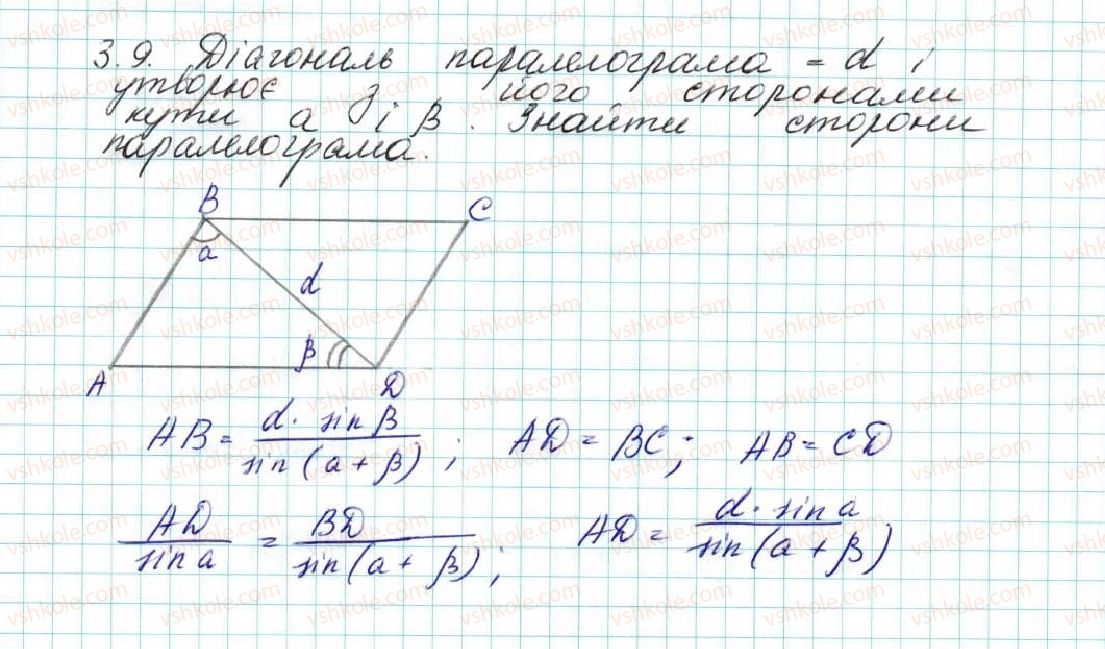 3.9. Діагональ паралелограма = d і
утворює з його сторонами
кути α і β. Знайти сторони
паралелограма.
B C
α
d
β
A D
AB = d · sin β / sin (α + β) ; AD = BC; AB = CD
AD / sin α = BD / sin (α + β) ; AD = d · sin α / sin (α + β)
vshkole.com